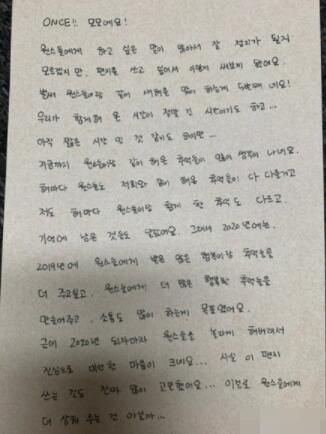 ONCE!! 모모에요!
원스들에게 하고 싶은 말이 많아서 잘 정리가 될지
모르겠지만, 편지를 쓰고 싶어서 이렇게 써보게 됐어요.
벌써 원스들이랑 같이 새해를 맞이 하는게 5번째네요!
우리가 함께해 온 시간이 정말 긴 시간이기도 하고...
아직 짧은 시간 인 것 같기도 하지만...
지금까지 원스들이랑 같이 해온 추억들이 많이 생각이 나네요.
해마다 원스들도 저희와 같이 해온 추억들이 다 다를거고
저도 해마다 원스들이랑 함께 한 추억도 다르고
기억에 남은 것들도 달라요. 그래서 2020년에는,
2019년에 원스들에게 받은 많은 행복이랑 추억들을
더 주고싶고, 원스들에게 더 많은 행복한 추억들을
만들어주고, 소통도 많이 하는게 목표였어요.
근데 2020년 되자마자 원스들을 놀라게 해버려서
진심으로 미안한 마음이 크네요... 사실 이 편지
쓰는 것도 진짜 많이 고민했어요... 이걸로 원스들에게
더 상처 주는 건 아닐까...